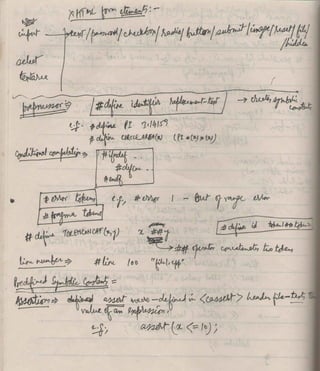 XHTML form elements:-
input → text/password/checkbox/radio/button/submit/image/reset/file/
/hidden
select
textarea
preprocessor ⇒ #define identifier replacement-text → creates symbolic
constants
e.g. #define PI 3.14159
#define CIRCLEAREA(x) (PI*(x)*(x))
Conditional compilation ⇒ #ifndef
#define
#endif
#error tokens e.g., #error 1 - Out of range error
#pragma tokens
#define id
#define TOKENCONCAT(x,y) x ##y
→ ## operator concatenates two tokens
Line number ⇒ #line 100 "file1.cpp"
Predefined Symbolic Constants =
Assertion ⇒ defined assert macro - defined in <cassert> header file - tests the
value of an expression.
e.g., assert (x <= 10);